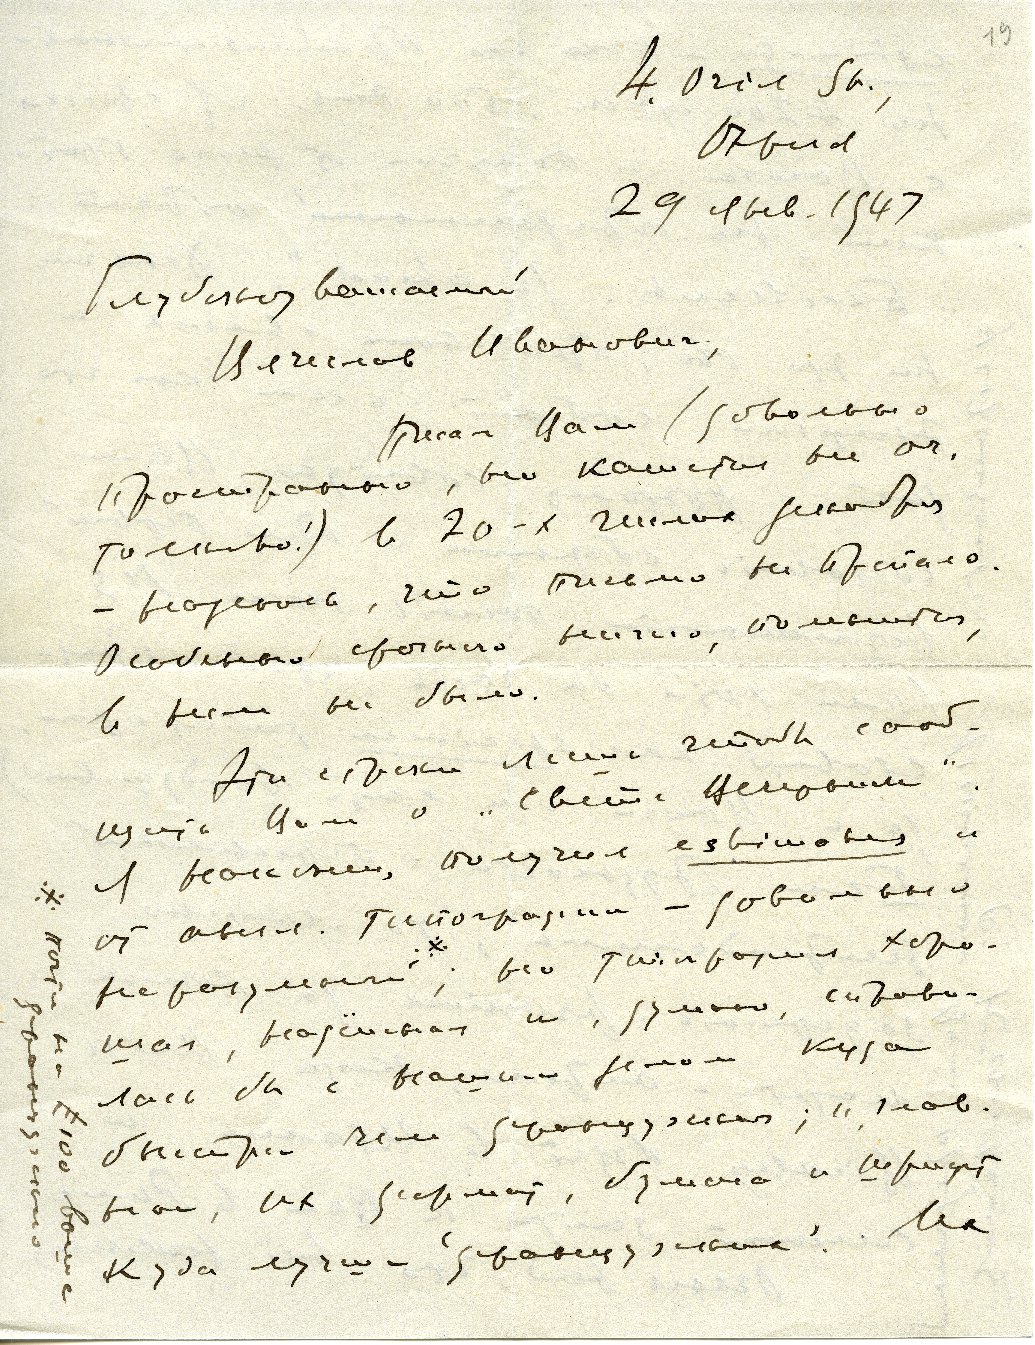 19
4. Oriel St.,
Oxford
29 янв. 1947
Глубокоуважаемый
Вячеслав Иванович,
Писал Вам (довольно
пространно, но кажется не от.
) в 20-х числах декабря
– надеюсь, что письмо не пропало.
Особенно срочного ничего, помнится,
в нем не было.
Эти строки лишь чтобы сооб-
щить Вам о „Свете Вечернем“.
Я наконец получил estimates и
от англ. типографии – довольно
неразумный※; но типография хоро-
шая, надёжная и, думаю, справи-
лась бы с нашим делом куда
быстрее чем французская; и, глав-
ное, их формат, бумага и шрифт
куда лучше 'французских'. Их
※ почти на £100 выше
французского